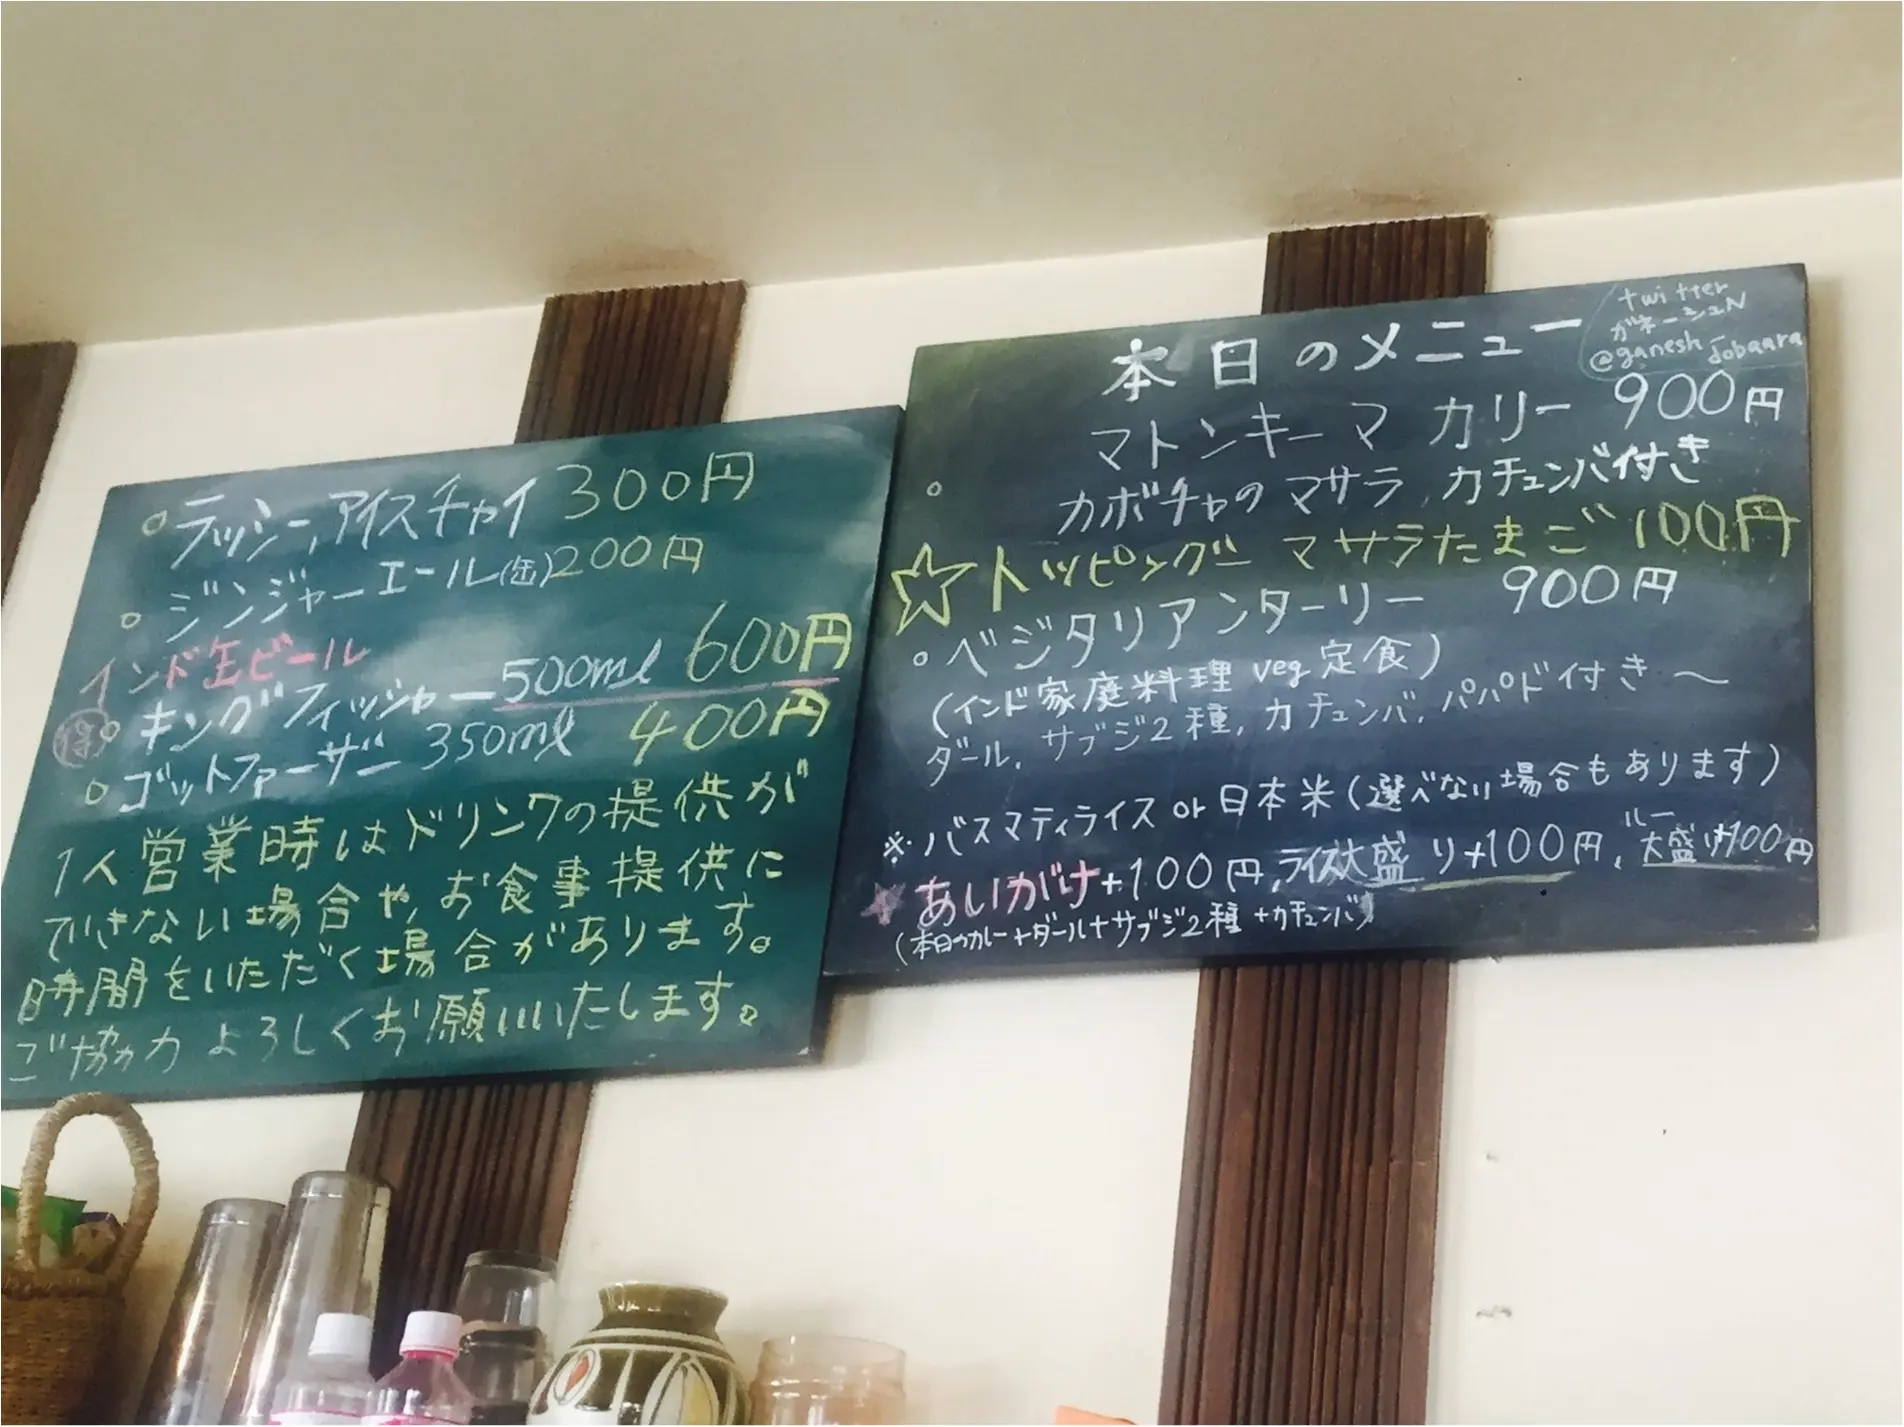 ラッシー,アイスチャイ 300円
ジンジャーエール(缶)200円
インド缶ビール
得 キングフィッシャー500ml 600円
ゴットファーザー 350ml 400円
1人営業時はドリンクの提供が
できない場合や、お食事提供に
時間をいただく場合があります。
ご協力よろしくお願いいたします。
twitter
ガネーシュN
@ganesh_jobaara
本日のメニュー
マトンキーマ カリー 900円
カボチャのマサラ,カチュンバ付き
☆トッピングー マサラたまご 100円
ベジタリアンターリー 900円
(インド家庭料理 veg定食)
ダール,サブジ2種,カチュンバ,パパド付き〜
※バスマティライス or 日本米(選べない場合もあります)
★あいがけ+100円,ライス大盛り+100円,ルー大盛り+100円
(本日のカレー+ダール+サブジ2種+カチュンバ)